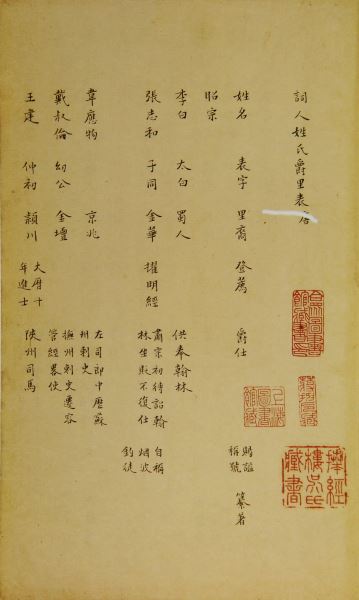 詞人姓氏爵里表
姓名 表字 里裔 登薦 爵仕 賜諡稱號 纂著
昭宗
李白 太白 蜀人 供奉翰林
張志和 子同 金華 擢明經 肅宗初待詔翰林坐貶不復仕 自稱烟波釣徒
韋應物 京兆 左司郎中歷蘇州刺史
戴叔倫 幼公 金壇 撫州刺史 容管經畧使
王建 仲初 潁川 大曆十年進士 陝州司馬
捧經樓 藏書